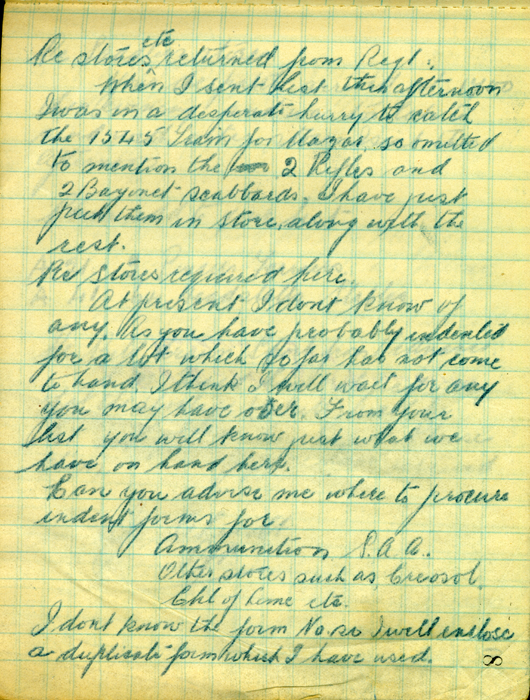 Re stores etc returned from Regt:
When I sent list this afternoon
I was in a desperate hurry to catch
the 1545 Train for Mazar, so omitted
to mention the 2 Rifles and
2 Bayonet scabbards. I have just
put them in store, along with the
rest.
Re stores required here.
At present I dont know of
any. As you have probably indented
for a lot which so far has not come
to hand, I think I will wait for any
you may have over. From your
list you will know just what we
have on hand here.
Can you advise me where to procure
indent forms for
Ammunition S.A.A.
Other stores such as Creosol,
Chl of Lime etc.
I dont know the form No so I will enclose
a duplicate form which I have used.
8